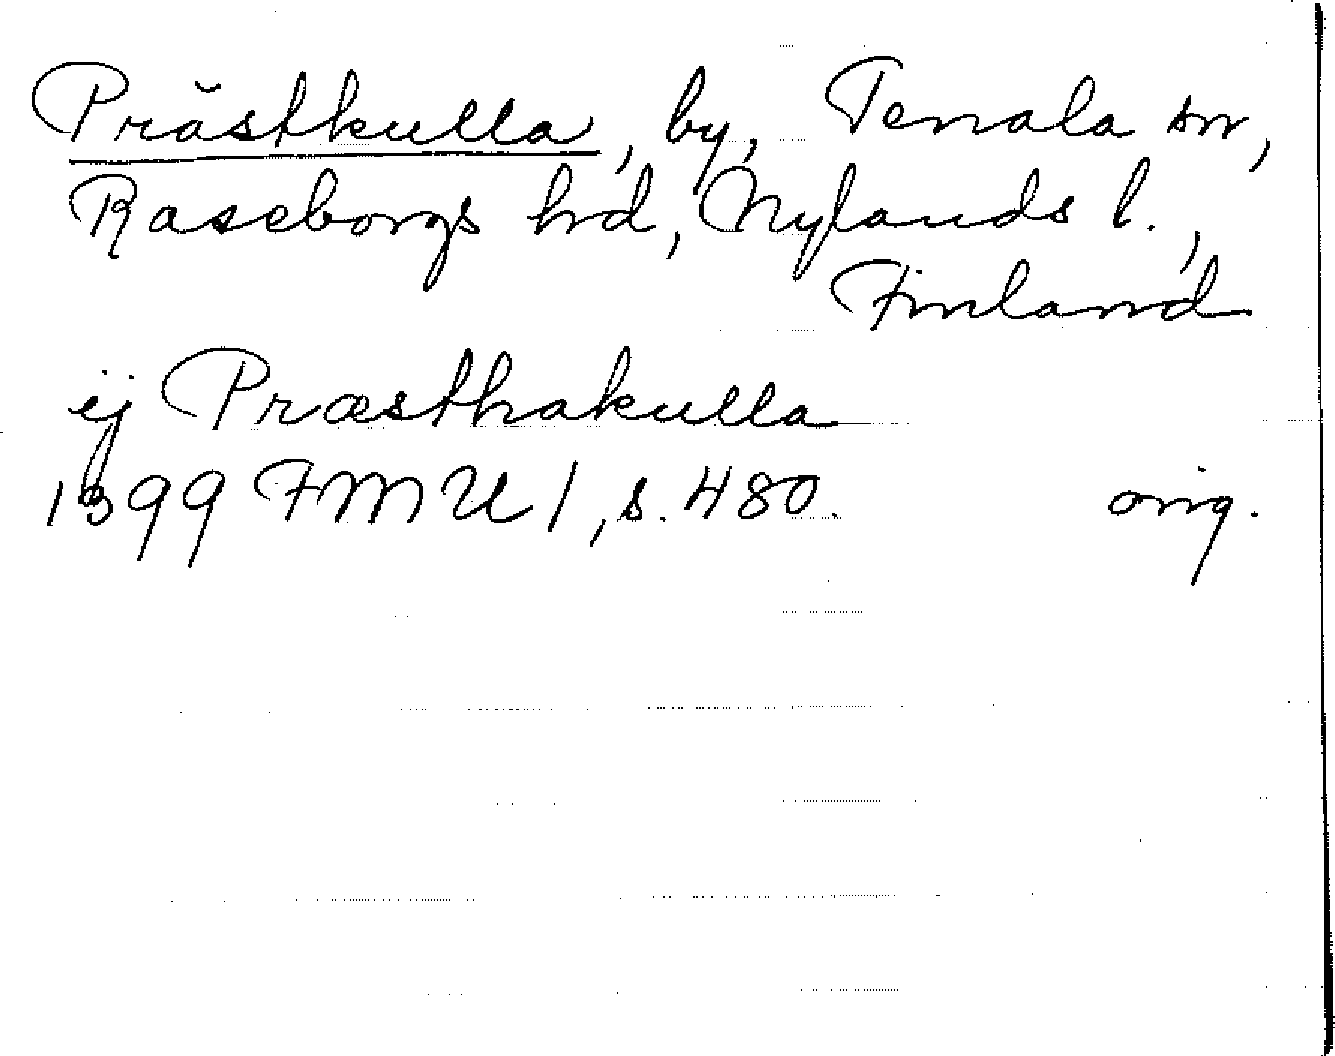 Prästkulla, by, Tenala sn,
Raseborgs hrd, Nylands l.,
Finland
ij Præsthakulla
1399 FMU 1, s. 480. orig.